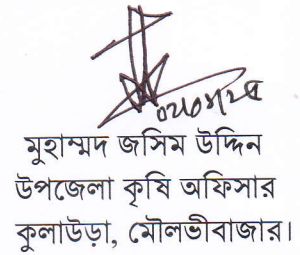 মুহাম্মদ জসিম উদ্দিন
উপজেলা কৃষি অফিসার
কুলাউড়া, মৌলভীবাজার।